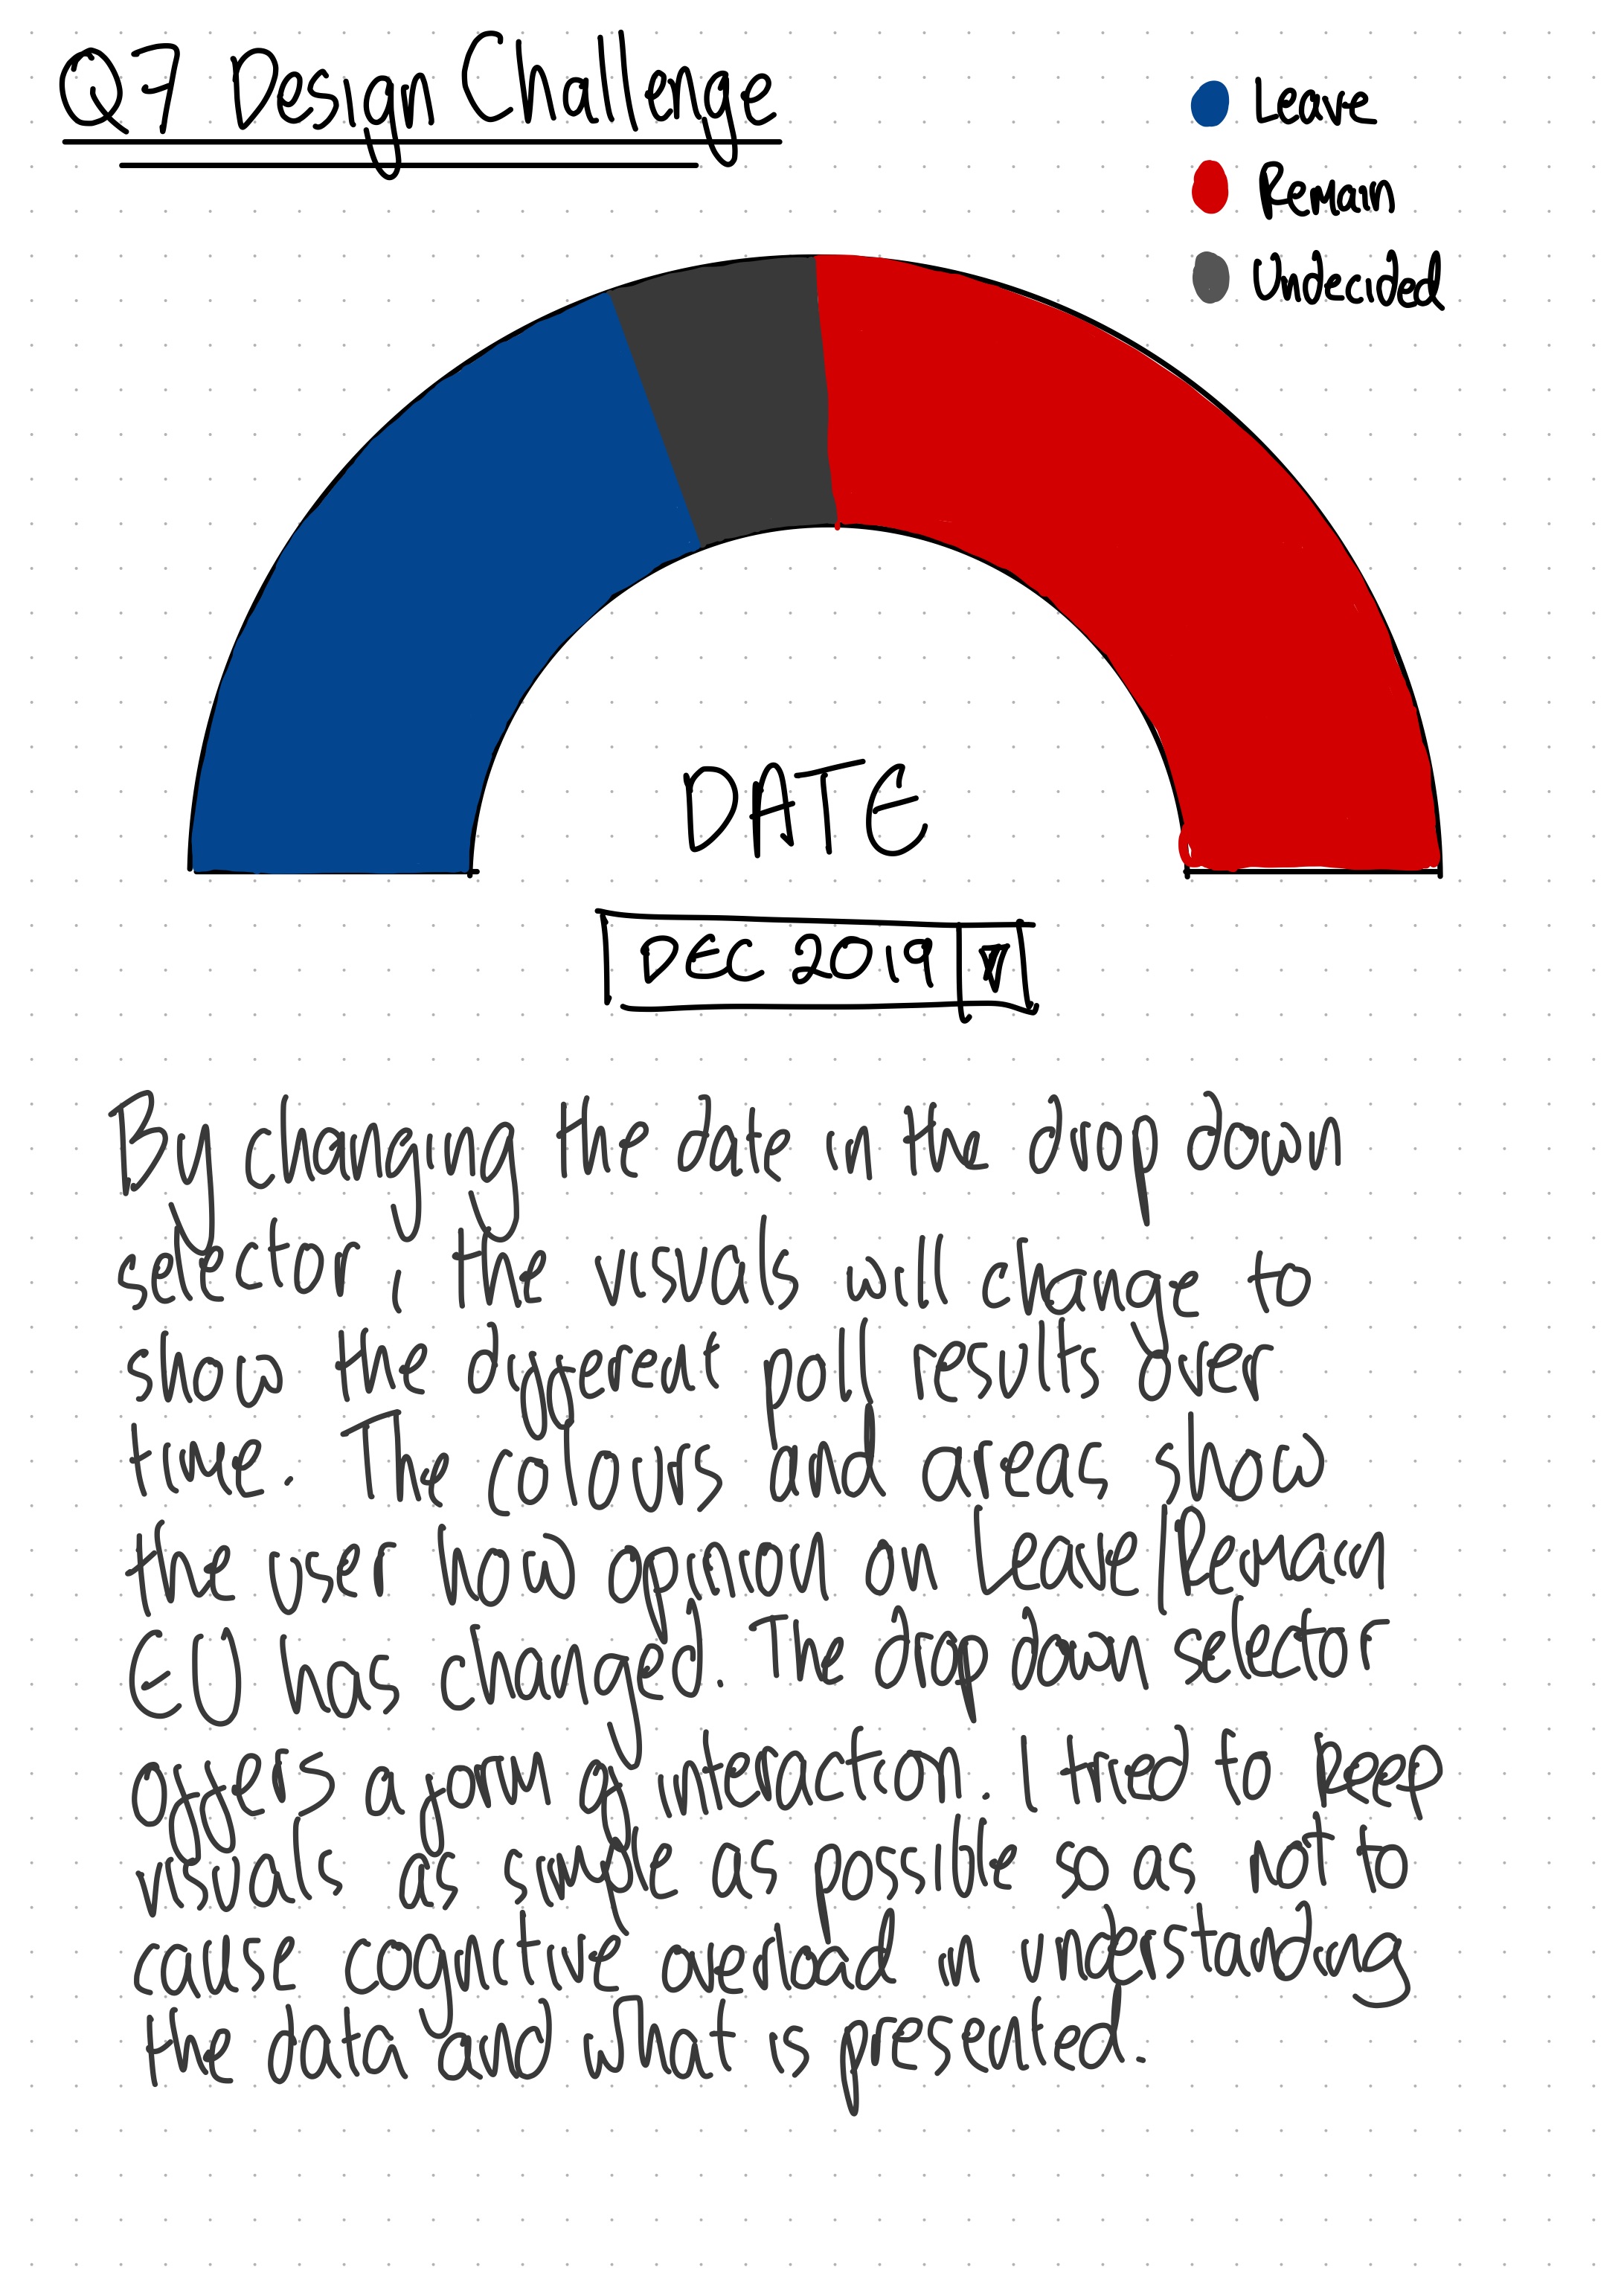 Q7 Design Challenge
Leave
Remain
Undecided
DATE
DEC 2019
By changing the date in the drop down
selector, the visuals will change to
show the different poll results over
time. The colours and areas show
the user how opinion on Leave/Remain
EU has changed. The drop down selector
offers a form of interaction. I tried to keep
visuals as simple as possible so as not to
cause cognitive overload in understanding
the data and what is presented.